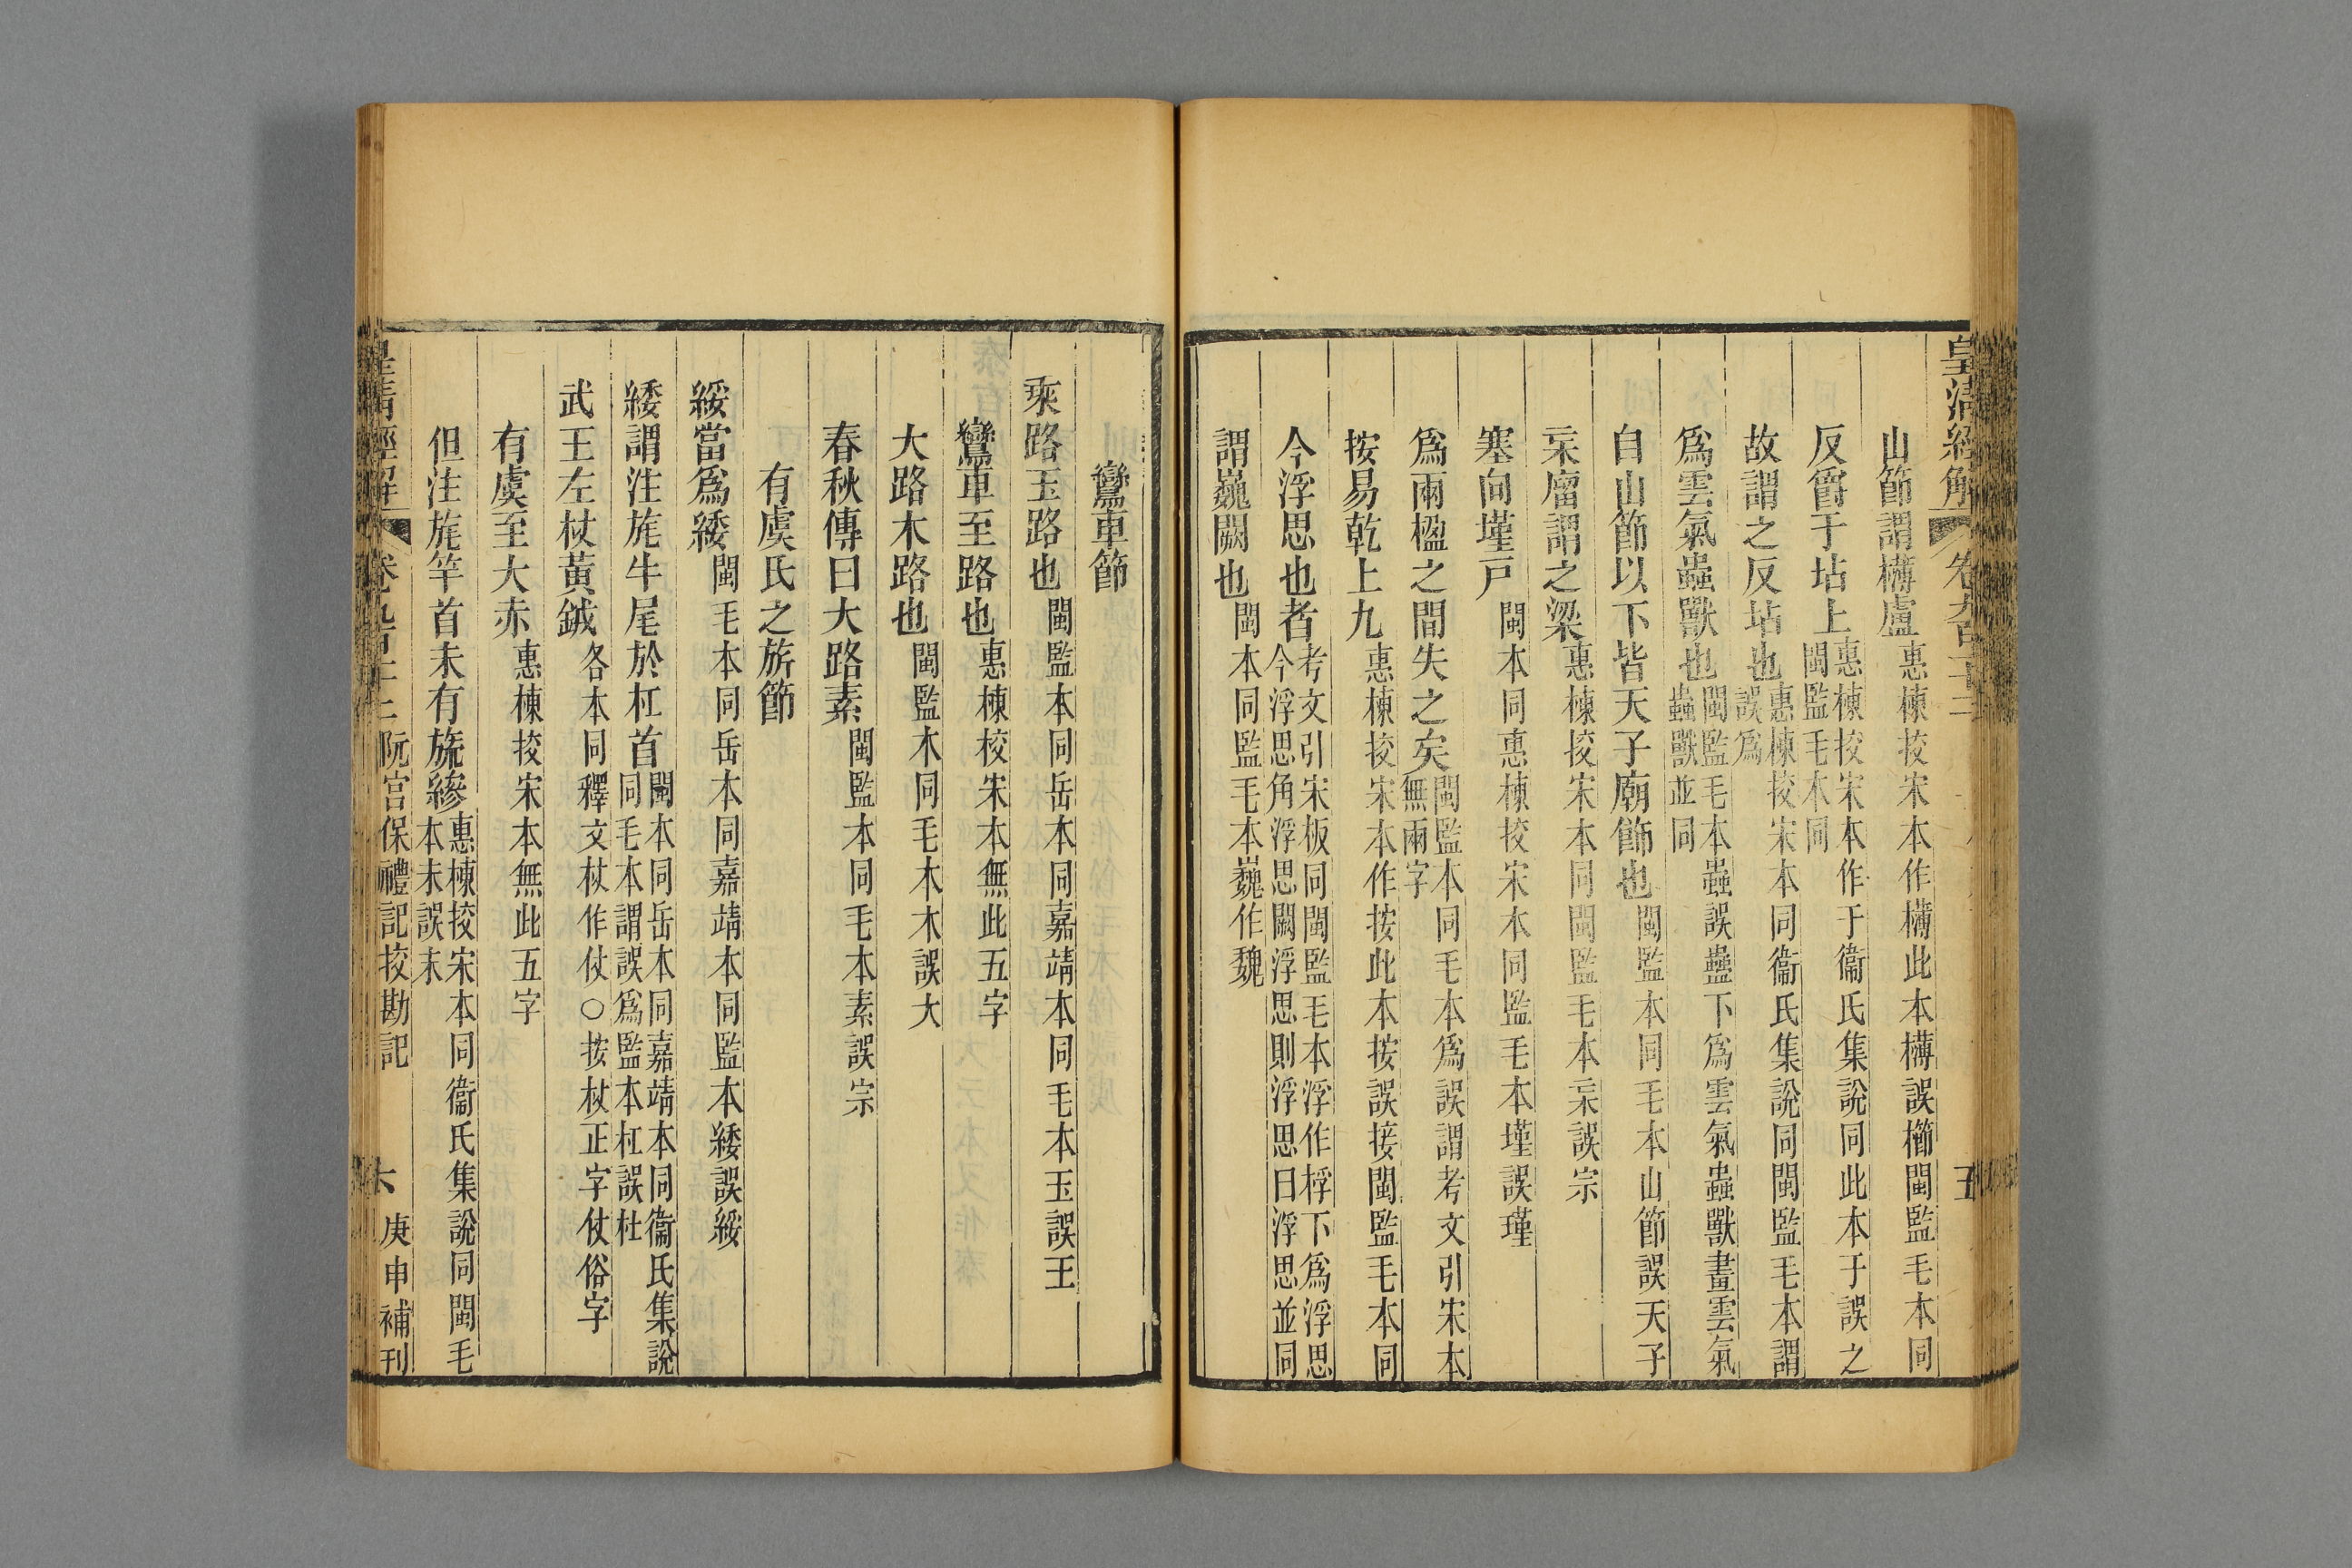 皇清經解 卷九百二十二 五
山節謂欂盧惠棟挍宋本作欂此本欂誤櫛閩監毛本同
反爵于坫上惠棟挍宋本作于衞氏集說同此本于誤之閩監毛本同
故謂之反坫也惠棟挍宋本同衞氏集說同閩監毛本謂誤爲
爲雲氣蟲獸也閩監毛本蟲誤蠱下爲雲氣蟲獸畫雲氣蟲獸並同
自山節以下皆天子廟飾也閩監本同毛本山節誤天子
杗廇謂之梁惠棟挍宋本同閩監毛本杗誤宗
塞向墐戸閩本同惠棟挍宋本同監毛本墐誤瑾
爲兩楹之間失之矣閩監本同毛本爲誤謂考文引宋本無兩字
按易乾上九惠棟挍宋本作按此本按誤接閩監毛本同
今浮思也者考文引宋板同閩監毛本浮作桴下爲浮思今浮思角浮思闕浮思則浮思曰浮思並同
謂巍闕也閩本同監毛本巍作魏
鸞車節
乘路玉路也閩監本同岳本同嘉靖本同毛本玉誤王
鸞車至路也惠棟校宋本無此五字
大路木路也閩監本同毛本木誤大
春秋傳曰大路素閩監本同毛本素誤宗
有虞氏之旂節
綏當爲緌閩毛本同岳本同嘉靖本同監本緌誤綏
緌謂注旄牛尾於杠首閩本同岳本同嘉靖本同衞氏集說同毛本謂誤爲監本杠誤杜
武王左杖黃鉞各本同釋文杖作仗○按杖正字仗俗字
有虞至大赤惠棟挍宋本無此五字
但注旄竿首未有旒縿惠棟挍宋本同衞氏集說同閩毛本未誤末
皇清經解 卷九百二十二 阮宮保禮記挍勘記 六 庚申補刊